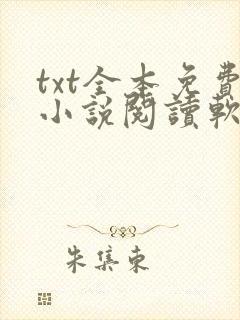 txt全本免費
小說閱讀軟
朱集東